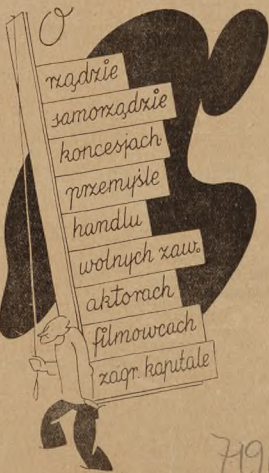 O
rządzie
samorządzie
koncesjach
przemyśle
handlu
wolnych zaw.
aktorach
filmowcach
zagr. kapitale
719